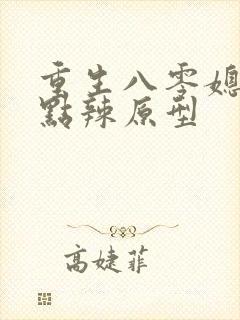 重生八零媳
點辣原型
高婕菲